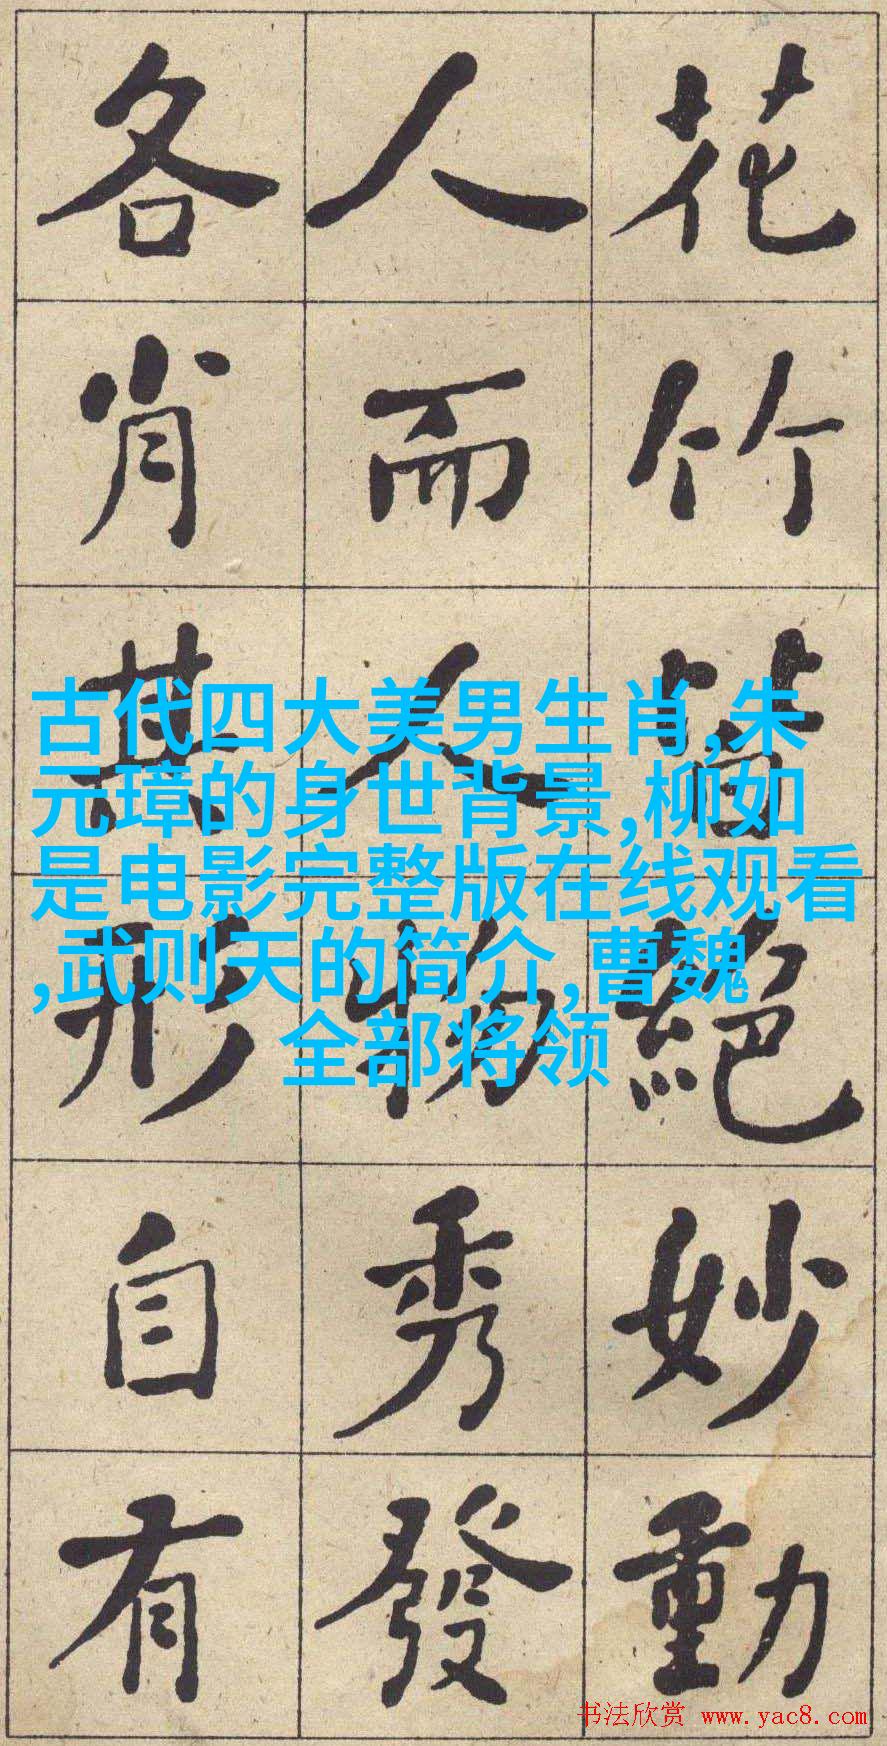 花竹皆絕妙動
人而人物秀發
各肖其形自有
古代四大美男生肖,朱
元璋的身世背景,柳如
是电影完整版在线观看
,武则天的简介,曹魏
全部将领
书法欣赏 www.yac8.com